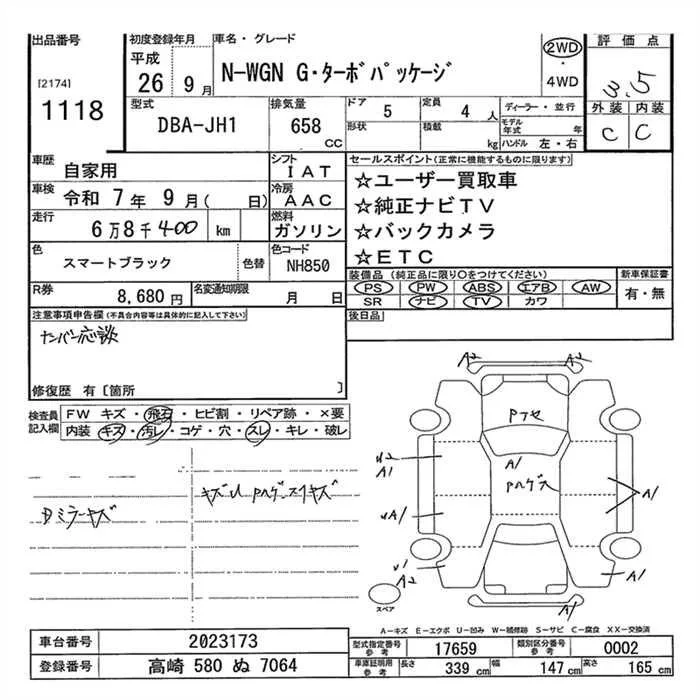 出品番号
[2174]
1118
初度登録年月
平成
26年 9月
車名・グレード
N-WGN G・ターボパッケージ
2WD
・
4WD
評価点
3.5
外装 内装
C C
型式
DBA-JH1
排気量
658
CC
ドア
5
定員
4人
形状
積載
kg
ディーラー・並行
モデル年式 年
ハンドル 左・右
車歴
自家用
シフト
IAT
車検
令和 7年 9月( 日)
冷房
AAC
走行
6万8千400 km
燃料
ガソリン
色
スマートブラック
色替
色コード
NH850
R券
8,680円
名変通知期限
月 日
セールスポイント(正常に機能するものに限ります)
☆ユーザー買取車
☆純正ナビTV
☆バックカメラ
☆ETC
装備品 (純正品に限り○をつけてください)
PS PW ABS エアB AW
SR ナビ TV カワ
新車保証書
有・無
後日品
注意事項申告欄(不具合内容等は具体的に記入して下さい)
ナンバー応談
修復歴 有[箇所 ]
検査員記入欄
FW キズ・飛石・ヒビ割・リペア跡・×要
内装 キズ・汚レ・コゲ・穴・スレ・キレ・破レ
Dミラーキズ
A2 A2
A1
A1
A1
A1
A2
A1
A1
スペア
A-キズ E-エクボ U-凹み W-補修跡 S-サビ C-腐食 XX-交換済
車台番号 2023173
登録番号 高崎 580 ぬ 7064
型式指定番号 参考 17659
類別区分番号 参考 0002
車庫証明用 参考 長さ 339cm 幅 147cm 高さ 165cm